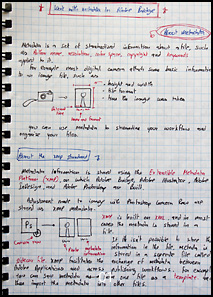 Work with metadata in Adobe Bridge
About metadata
Metadata is a set of standardized information about a file, such
as Author name, resolution, color space, copyright and keywords
applied to it.
For example most digital cameras attach some basic information
to an image file, such as
height and width
file format
time the image was taken
you can use metadata to streamline your workflow and
organize your files.
About the XMP standard
Metadata information is stored using the Extensible Metadata
Platform (XMP), on which Adobe Bridge, Adobe Illustrator, Adobe
InDesign, and Adobe Photoshop are built.
Adjustments made to images with Photoshop Camera Raw are
stored as XMP metadata.
XMP is built on XML, and in most
cases the metadata is stored in a
Camera raw
If it isn't possible to store the
information in the file, metadata is
stored in a separate file called
sidecar file. XMP facilitates the exchange of metadata between
Adobe Applications and across publishing workflows. For example
you can save metadata from one file as a template and
then import the metadata into other files.